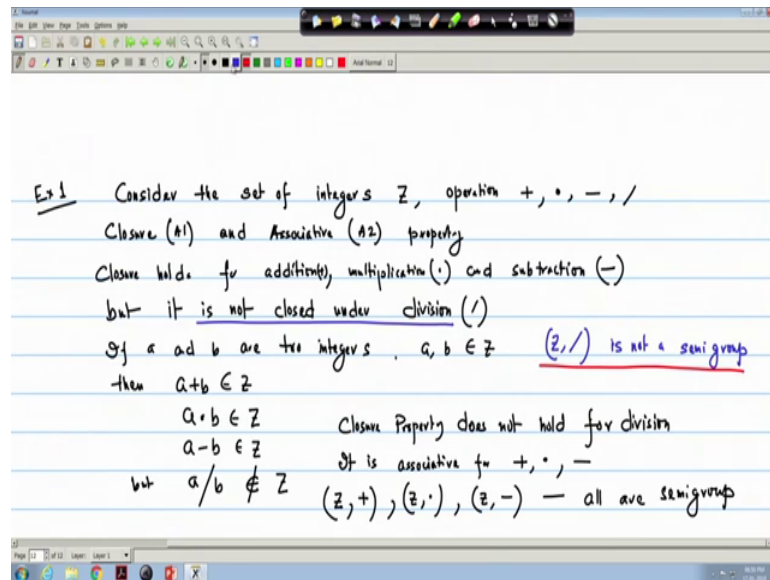 Journal
File Edit View Page Tools Options Help
Arial Normal 12
Ex 1 Consider the set of integers Z, operation +, •, −, /
Closure (A1) and Associative (A2) property
Closure holds for addition(+), multiplication (·) and subtraction (−)
but it is not closed under division (/)
If a ad b are two integers . a, b ∈ Z (Z, /) is not a semigroup
then a+b ∈ Z
a • b ∈ Z
a − b ∈ Z
but a/b ∉ Z
Closure Property does not hold for division
It is associative for +, ·, −
(Z, +), (Z, ·), (Z, −) — all are semigroup
Page 12 of 12 Layer: Layer 1